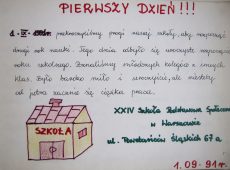 PIERWSZY DZIEŃ!!!
przekroczyliśmy progi naszej szkoły, aby rozpocząć
drugi rok nauki. Tego dnia odbyło się uroczyste rozpoczęcie
roku szkolnego. Poznaliśmy młodszych kolegów z innych
klas. Było bardzo miło i uroczyście, ale niestety
od jutra zacznie się ciężka praca.
SZKOŁA
XXIV Szkoła Podstawowa Społeczna
w Warszawie
ul. Powstańców Śląskich 67a
1.09.91r.